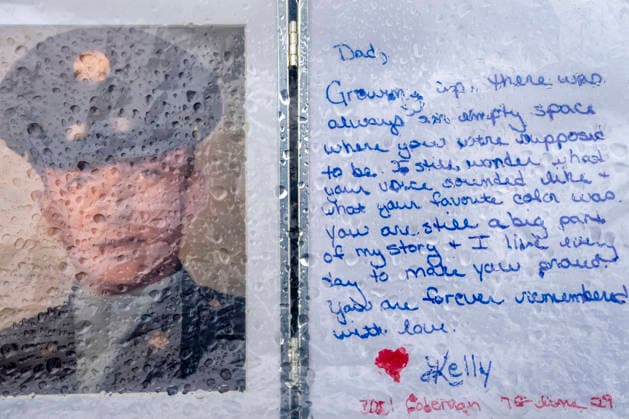 Dad,
Growing up, there was
always an empty space
where you were supposed
to be. I still wonder what
your voice sounded like +
what your favorite color was.
You are still a big part
of my story + I live every
day to make you proud.
You are forever remembered
with love.
Kelly
Coleman 75 June 29